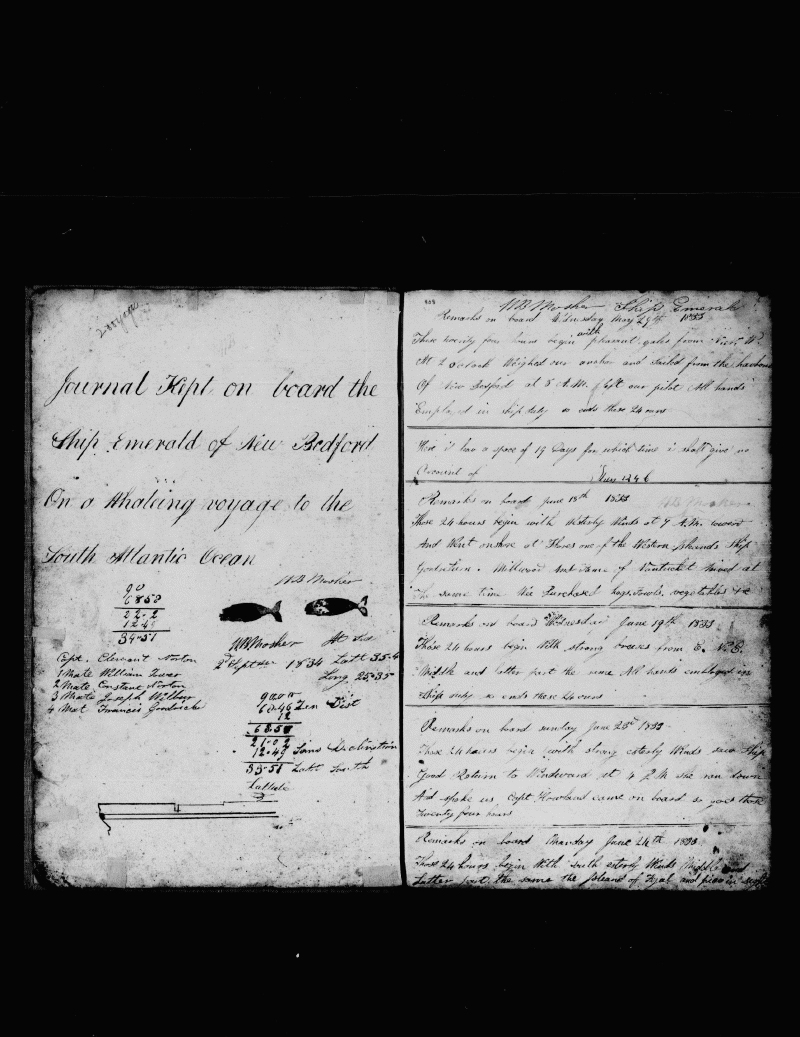 Journal Kept on board the
Ship Emerald of New Bedford
On a Whaling voyage to the
South Atlantic Ocean
W B Mosher
90
6858
22-2
1249
34-51
W B Mosher At Sea
Capt. Clement Norton
2 Sept 1834 Latt 35-
Long 25-35
1 Mate William
2 Mate Constant Norton
3 Mate Joseph Wilbur
4 Mat Francis
90 00
60-46 Zen Dist
12
6858
21-02
12-49 Suns Declination
33-51 Latt South
Latitude
W B Mosher Ship Emerald
Remarks on board May 29th 1833
These twenty four hours begin with pleasant gales from
At 2 oclock Weighed our anchor and Sailed from the harbour
Of New Bedford at 8 A.M. left our pilot All hands
Employed in ship duty so ends these 24 ours
Here is a space of 19 Days for which time i shall give no
Account of
Remarks on board June 18th 1833
W B Mosher
These 24 hours begin with Westerly Winds at 9 A.M. lowered
And Went onshore at Flores one of the Western Islands Ship
of Nantucket at
The same time We Purchased hogs, fowls, vegetables &c
Remarks on board Wednesday June 19th 1833
These 24 hours begin With strong breeses from E. N. E.
Middle and latter part the same All hands employed in
Ship duty so ends these 24 ours
Remarks on board sunday June 23d 1833
These 24 hours begin with strong esterly Winds saw Ship
Good Return to Windward at 4 P.M. she ran down
And spoke us Capt Howland came on board so goes these
twenty four ours
Remarks on board Monday June 24th 1833
These 24 hours begin With south esterly Winds Middle and
Latter part the same the Island of Fyal and pico in sight